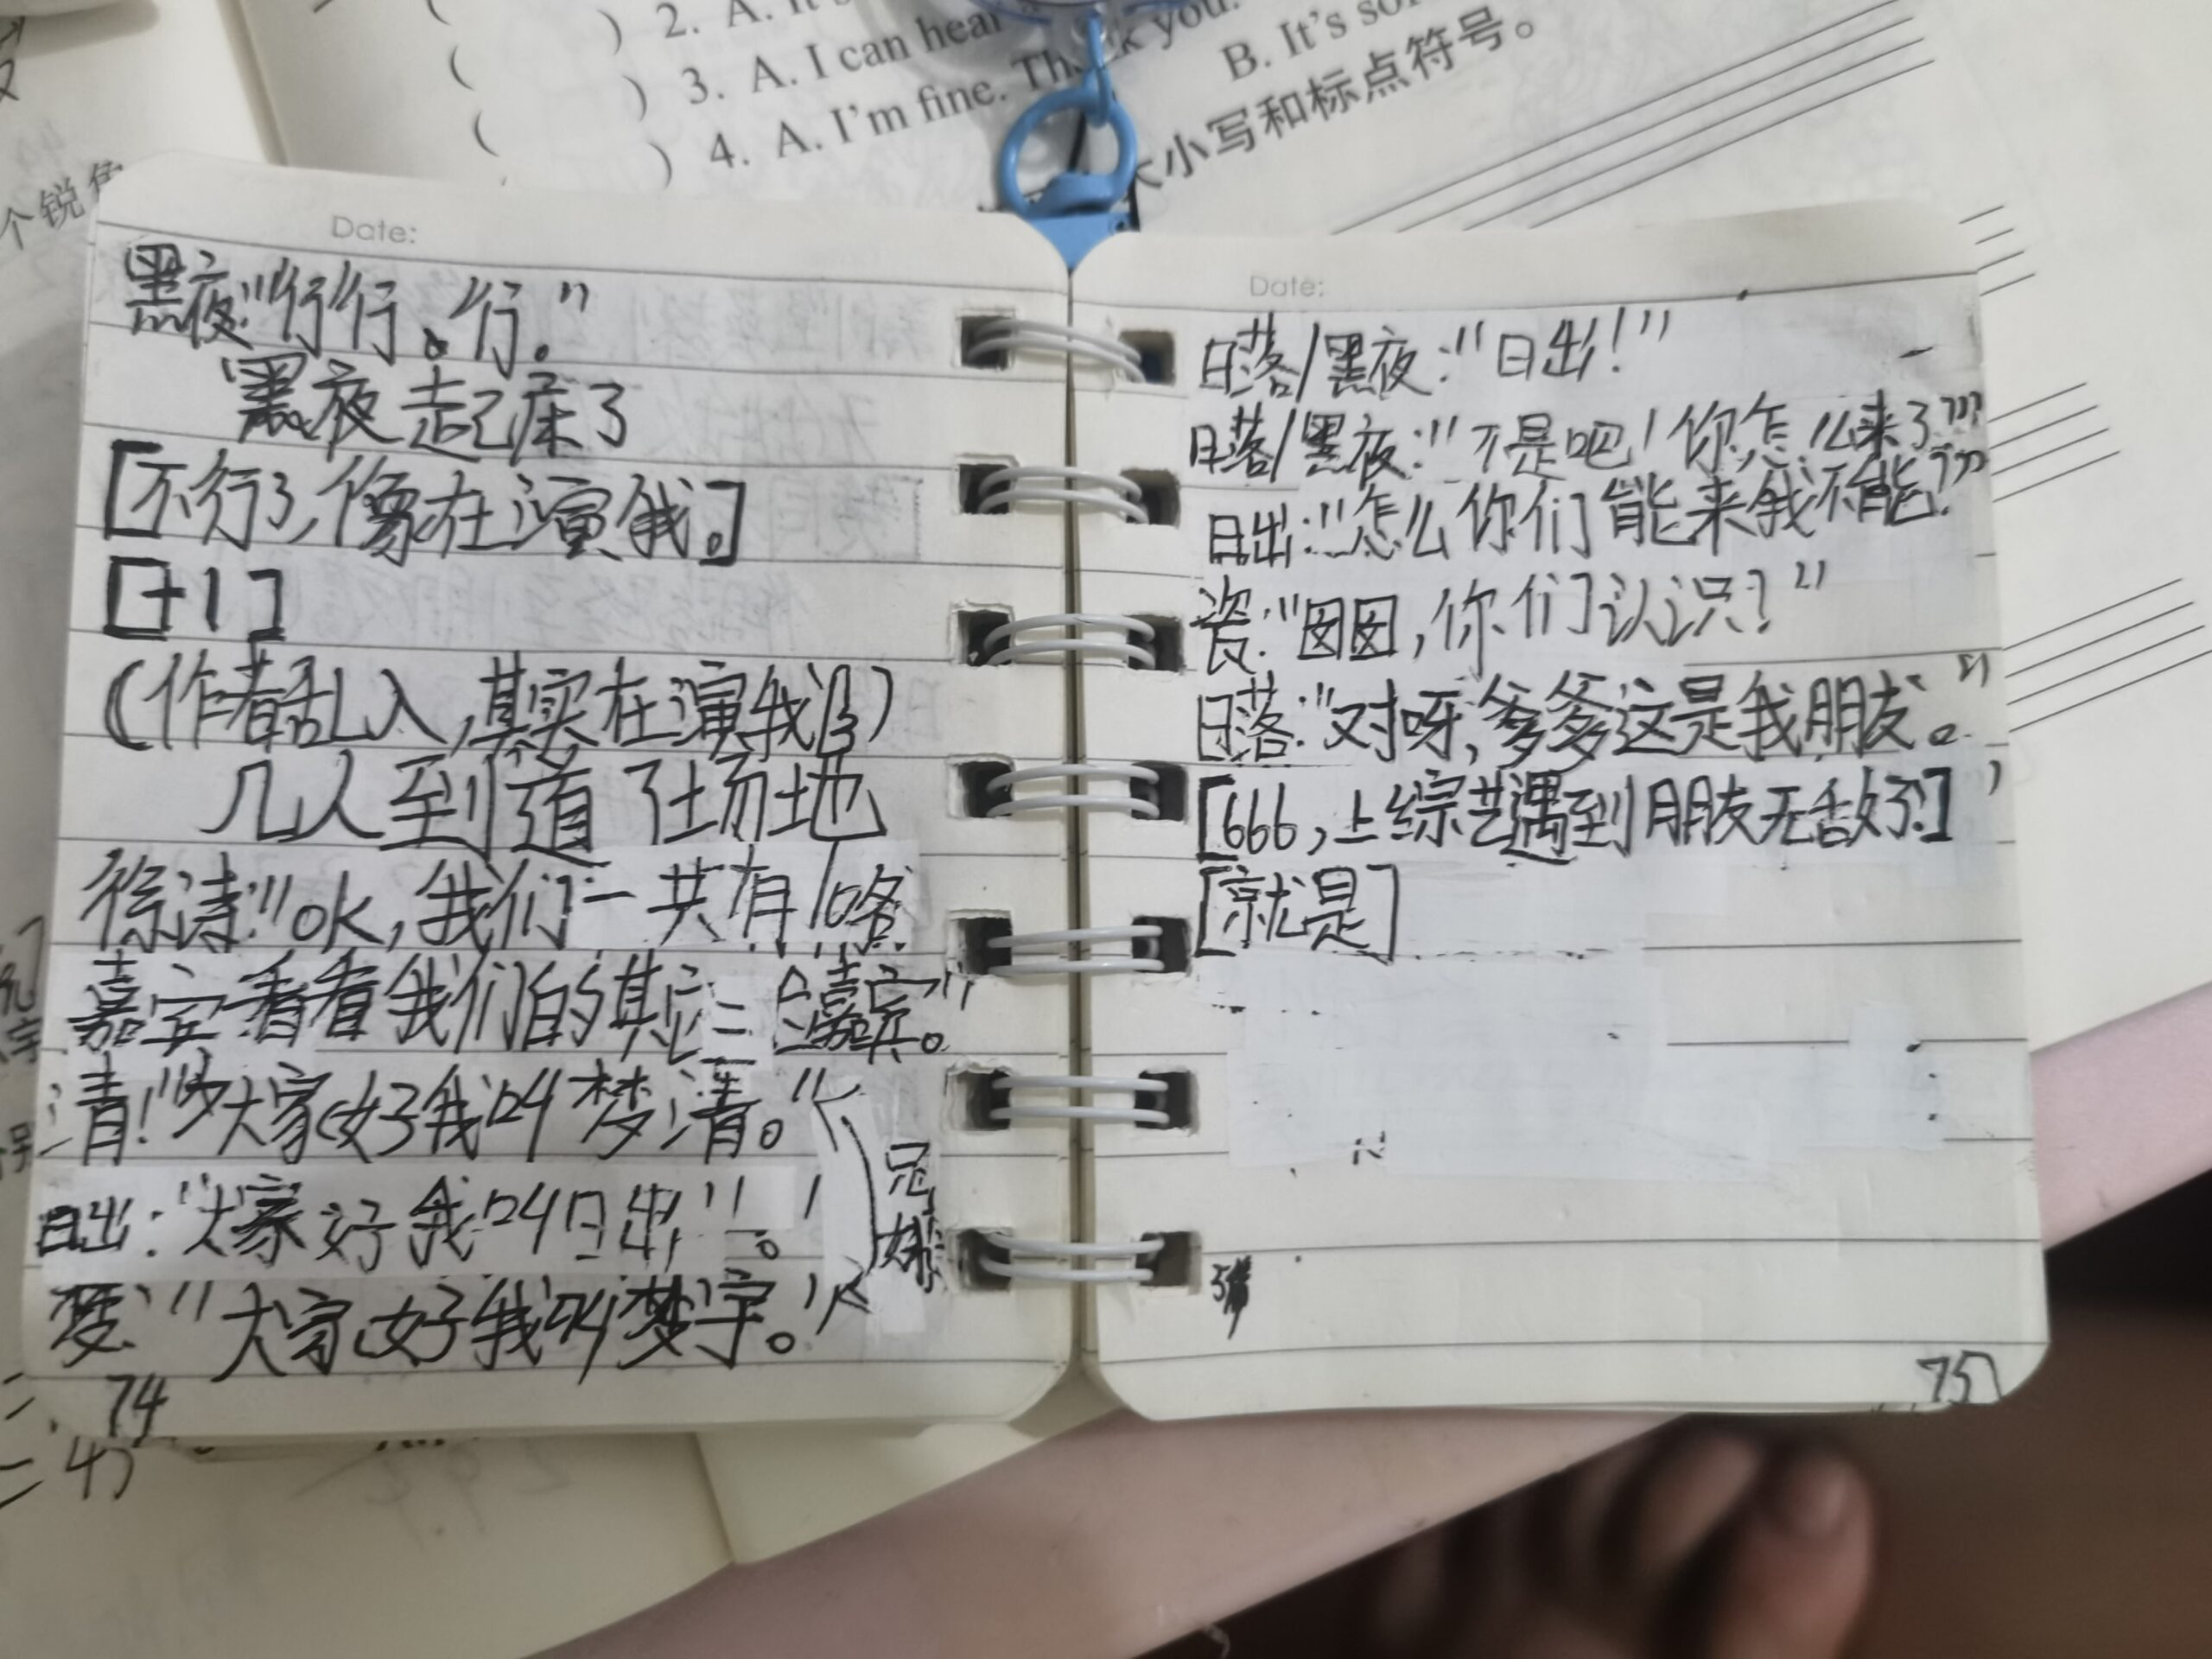 ) 2. A. It's
( ) 3. A. I can hear
( ) 4. A. I'm fine. Thank you.
B. It's so
大小写和标点符号。
个锐角
Date:
黑夜:"行行。行。"
黑夜起床了
[不行了,像在演我。]
[+1]
(作者乱入,其实在演我自己)
几人到道了场地
徐涛:"ok,我们一共有10名
嘉宾看看我们的其他三位嘉宾。"
清:"大家好我叫梦清。"
日出:"大家好我叫日出"。
梦:"大家好我叫梦宇。"
兄妹
74
Date:
日落/黑夜:"日出!"
日落/黑夜:"不是吧!你怎么来了???"
日出:"怎么你们能来我不能?"
瓷:"囡囡,你们认识?"
日落:"对呀,爹爹这是我朋友。"
[666,上综艺遇到朋友无敌了]
[就是]
75